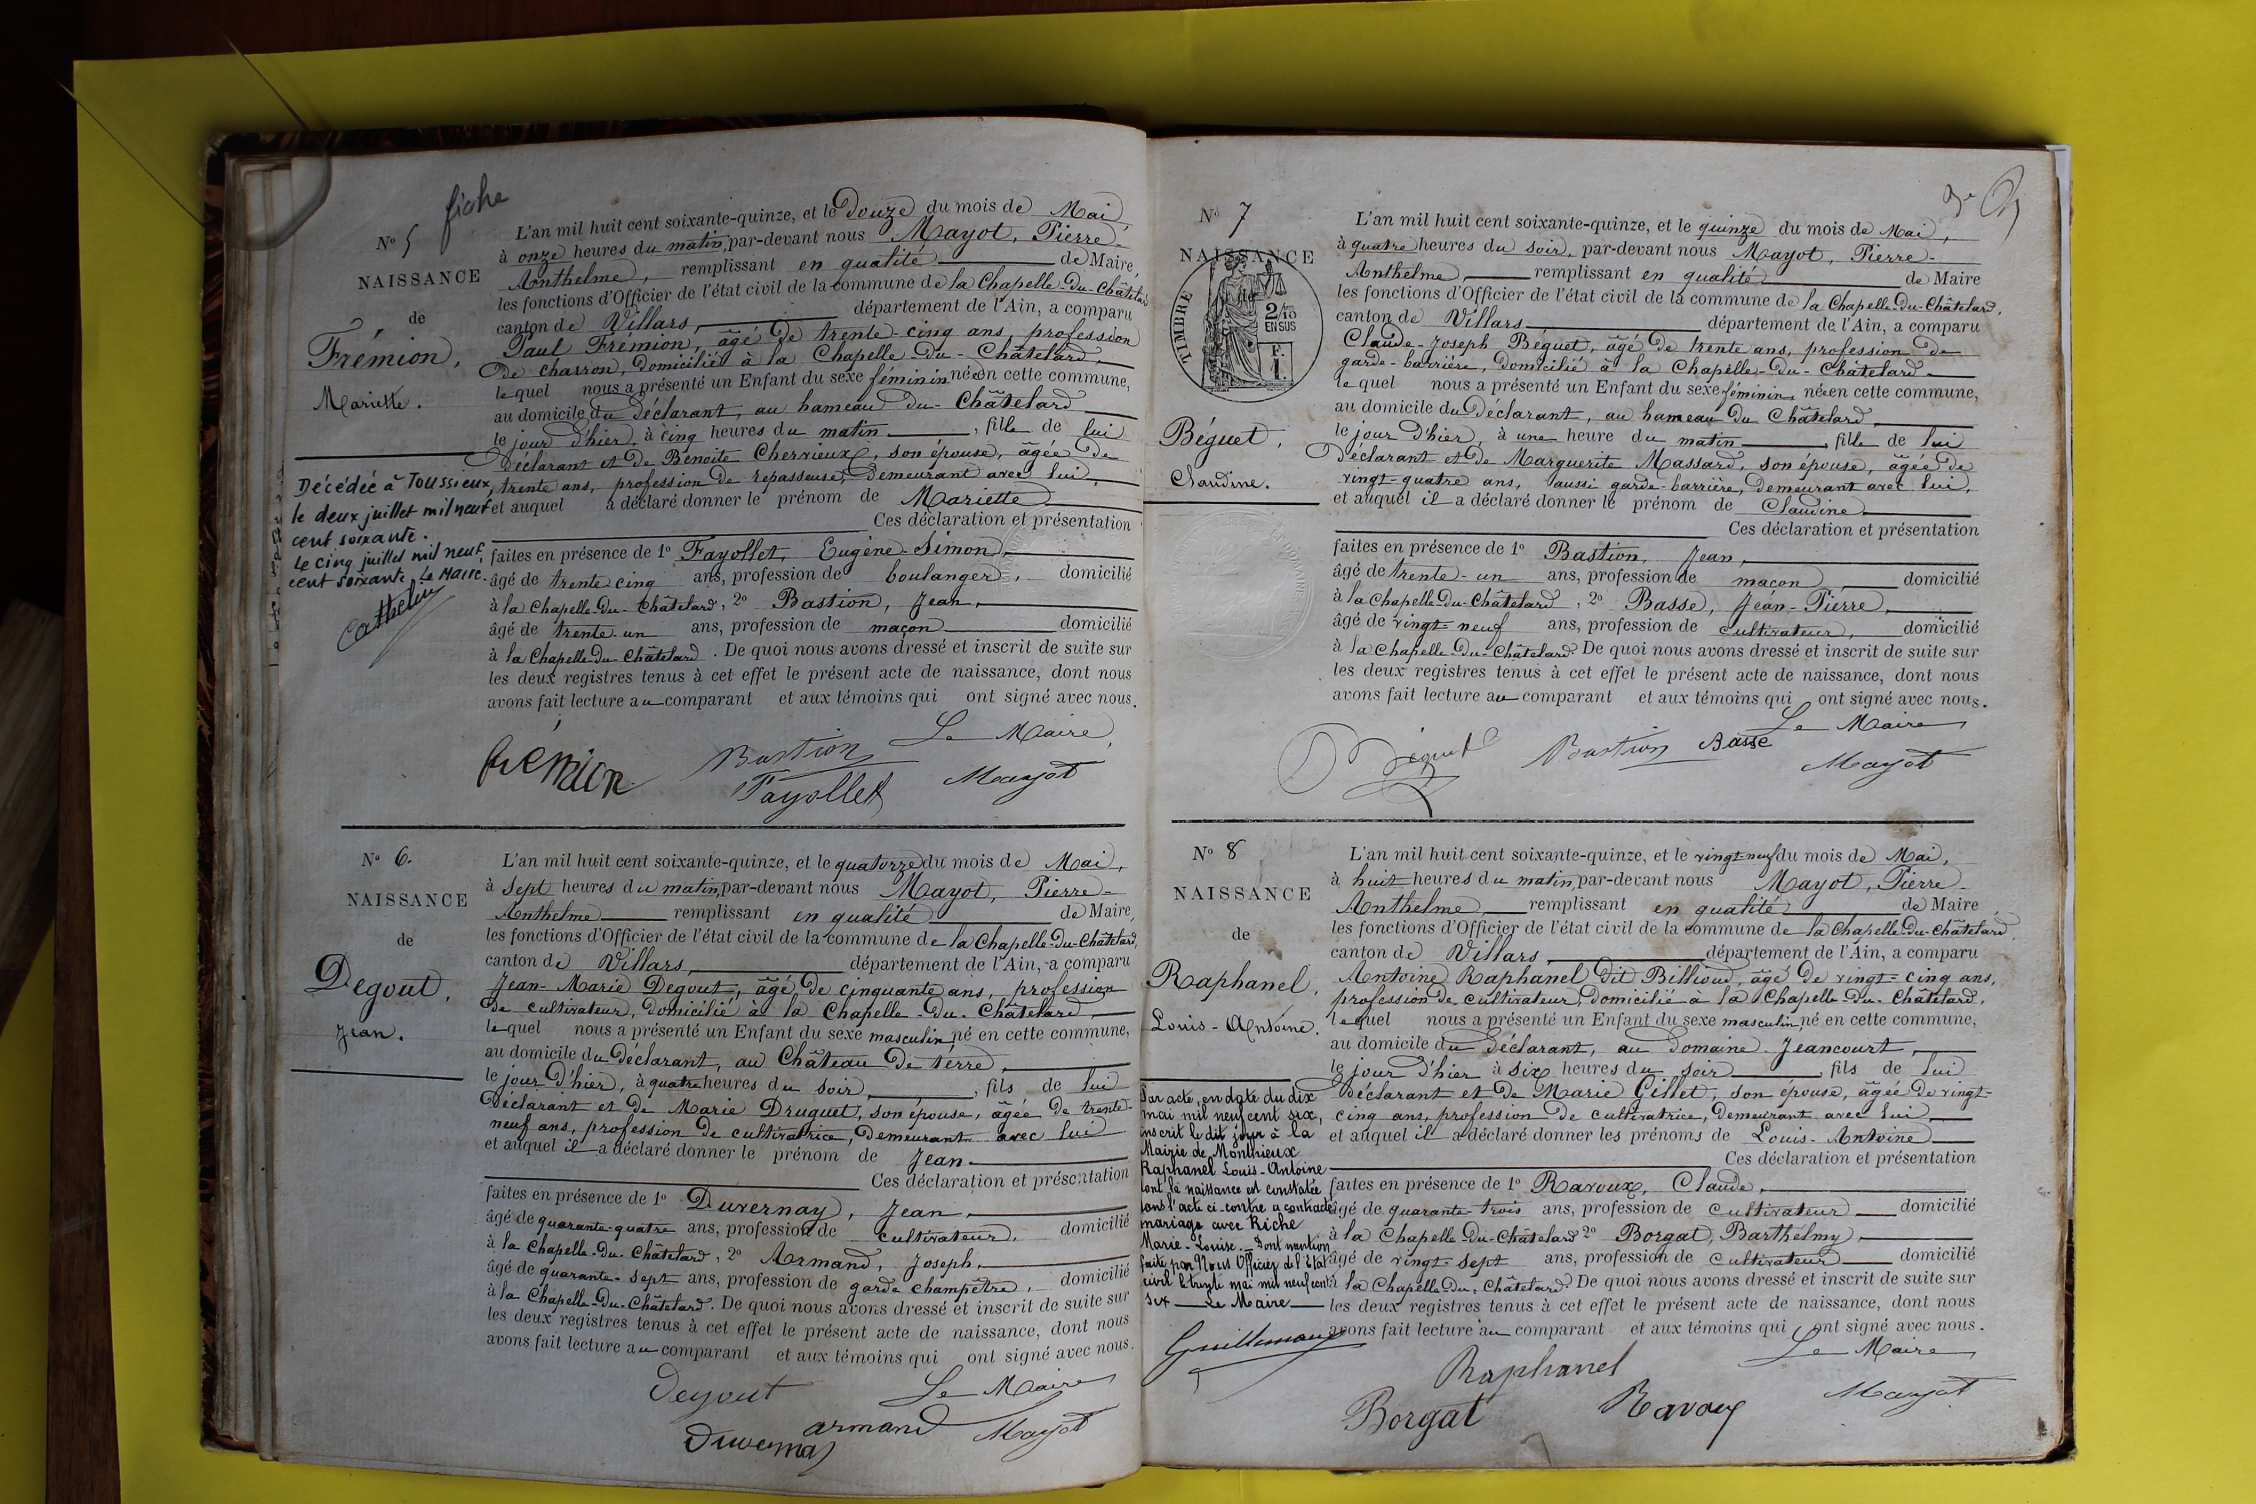 fiche
N° 5
NAISSANCE
de
Frémion,
Mariette.
Décédée à Toussieux,
le deux juillet mil neuf
cent soixante.
Le cinq juillet mil neuf
cent soixante. Le Maire.
L'an mil huit cent soixante-quinze, et le Douze du mois de Mai
à onze heures du matin, par-devant nous Mayot, Pierre-
Anthelme, remplissant en qualité de Maire,
les fonctions d'Officier de l'état civil de la commune de la Chapelle-Du-Châtelard
canton de Villars, département de l'Ain, a comparu
Paul Frémion, âgé de trente-cinq ans, profession
de charron, domicilié à la Chapelle-du-Châtelard
lequel nous a présenté un Enfant du sexe féminin née en cette commune,
au domicile du Déclarant, au hameau du Châtelard
le jour d'hier, à cinq heures du matin, fille de lui
Déclarant et de Benoite Chervieux, son épouse, âgée de
trente ans, profession de repasseuse, demeurant avec lui,
et auquel a déclaré donner le prénom de Mariette
Ces déclaration et présentation
faites en présence de 1° Fayollet, Eugène-Simon,
âgé de trente cinq ans, profession de boulanger, domicilié
à la Chapelle-Du-Châtelard, 2° Bastion, Jean,
âgé de trente-un ans, profession de maçon domicilié
à la Chapelle-Du-Châtelard. De quoi nous avons dressé et inscrit de suite sur
les deux registres tenus à cet effet le présent acte de naissance, dont nous
avons fait lecture au comparant et aux témoins qui ont signé avec nous.
Le Maire,
Frémion Bastion Mayot
Fayollet
N° 6.
NAISSANCE
de
Degout,
Jean.
L'an mil huit cent soixante-quinze, et le quatorze du mois de Mai,
à sept heures du matin, par-devant nous Mayot, Pierre-
Anthelme remplissant en qualité de Maire
les fonctions d'Officier de l'état civil de la commune de la Chapelle-Du-Châtelard,
canton de Villars, département de l'Ain, a comparu
Jean-Marie Degout, âgé de cinquante ans, profession
de cultivateur, domicilié à la Chapelle-du-Châtelard,
lequel nous a présenté un Enfant du sexe masculin, né en cette commune,
au domicile du Déclarant, au Château de terre,
le jour d'hier, à quatre heures du soir, fils de lui
Déclarant et de Marie Druguet, son épouse, âgée de trente-
neuf ans, profession de cultivatrice, demeurant avec lui
et auquel il a déclaré donner le prénom de Jean
Ces déclaration et présentation
faites en présence de 1° Duvernay, Jean,
âgé de quarante-quatre ans, profession de cultivateur, domicilié
à la Chapelle-Du-Châtelard, 2° Armand, Joseph,
âgé de quarante-sept ans, profession de garde champêtre, domicilié
à la Chapelle-Du-Châtelard. De quoi nous avons dressé et inscrit de suite sur
les deux registres tenus à cet effet le présent acte de naissance, dont nous
avons fait lecture au comparant et aux témoins qui ont signé avec nous.
Degout Le Maire
Duvernay armand Mayot
N° 7
NAISSANCE
TIMBRE
2/10
EN SUS
F.
1.
Béguet,
Claudine.
L'an mil huit cent soixante-quinze, et le quinze du mois de Mai,
à quatre heures du soir, par-devant nous Mayot, Pierre-
Anthelme remplissant en qualité de Maire
les fonctions d'Officier de l'état civil de la commune de la Chapelle-Du-Châtelard,
canton de Villars département de l'Ain, a comparu
Claude-Joseph Béguet, âgé de trente ans, profession de
garde-barrière, domicilié à la Chapelle-du-Châtelard
lequel nous a présenté un Enfant du sexe féminin, née en cette commune,
au domicile du Déclarant, au hameau du Châtelard
le jour d'hier, à une heure du matin, fille de lui
Déclarant et de Marguerite Massard, son épouse, âgée de
vingt-quatre ans, aussi garde-barrière, demeurant avec lui,
et auquel il a déclaré donner le prénom de Claudine
Ces déclaration et présentation
faites en présence de 1° Bastion, Jean,
âgé de trente-un ans, profession de maçon domicilié
à la Chapelle-Du-Châtelard, 2° Basse, Jean-Pierre,
âgé de vingt-neuf ans, profession de cultivateur, domicilié
à la Chapelle-Du-Châtelard. De quoi nous avons dressé et inscrit de suite sur
les deux registres tenus à cet effet le présent acte de naissance, dont nous
avons fait lecture au comparant et aux témoins qui ont signé avec nous.
Le Maire
Béguet Bastion Basse Mayot
N° 8
NAISSANCE
de
Raphanel,
Louis-Antoine.
Par acte, en date du dix
mai mil neuf cent six,
inscrit le dit jour à la
Mairie de Monthieux
Raphanel Louis-Antoine
dont la naissance est constatée
dans l'acte ci-contre a contracté
mariage avec Riche
Marie-Louise. Dont mention
faite par Nous Officier de l'Etat
civil le trente mai mil neuf cent
six Le Maire
L'an mil huit cent soixante-quinze, et le vingt-neuf du mois de Mai,
à huit heures du matin, par-devant nous Mayot, Pierre-
Anthelme remplissant en qualité de Maire
les fonctions d'Officier de l'état civil de la commune de la Chapelle-du-Châtelard,
canton de Villars, département de l'Ain, a comparu
Antoine Raphanel dit Billioud, âgé de vingt-cinq ans,
profession de cultivateur, domicilié à la Chapelle-Du-Châtelard,
lequel nous a présenté un Enfant du sexe masculin né en cette commune,
au domicile du Déclarant, au domaine Jeancourt,
le jour d'hier à six heures du soir, fils de lui
Déclarant et de Marie Gillet, son épouse, âgée de vingt-
cinq ans, profession de cultivatrice, demeurant avec lui,
et auquel il a déclaré donner les prénoms de Louis-Antoine
Ces déclaration et présentation
faites en présence de 1° Ravoux, Claude,
âgé de quarante-trois ans, profession de cultivateur domicilié
à la Chapelle-Du-Châtelard 2° Borgat, Barthélmy,
âgé de vingt-sept ans, profession de cultivateur domicilié
à la Chapelle-Du-Châtelard. De quoi nous avons dressé et inscrit de suite sur
les deux registres tenus à cet effet le présent acte de naissance, dont nous
avons fait lecture au comparant et aux témoins qui ont signé avec nous.
Raphanel Le Maire
Borgat Ravoux Mayot